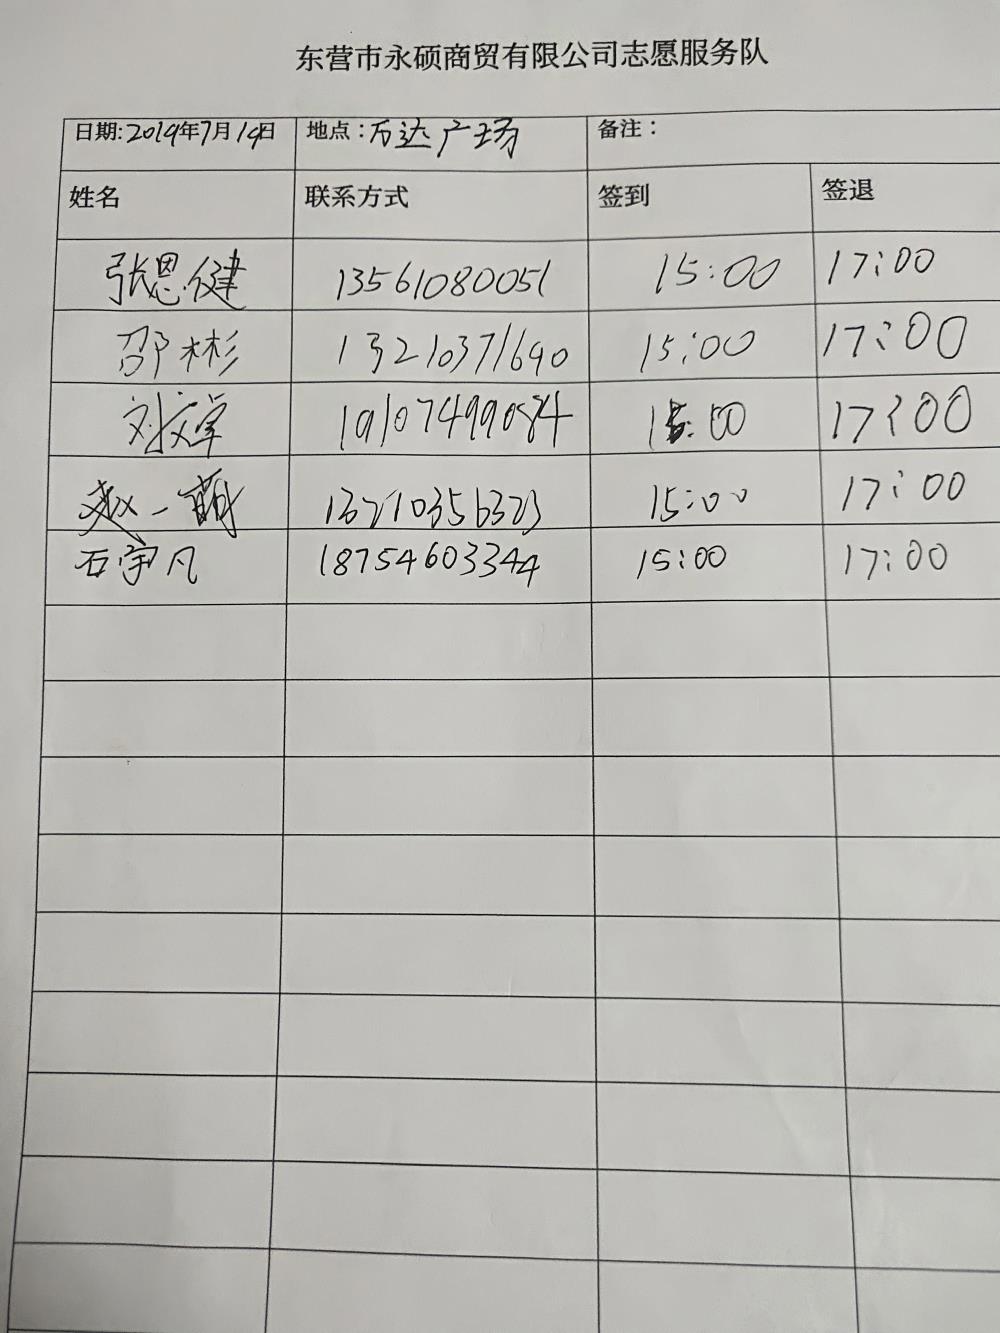 东营市永硕商贸有限公司志愿服务队
日期:2019年7月14日 地点:万达广场 备注:
姓名 联系方式 签到 签退
张恩健 13561080051 15:00 17:00
邵彬 13210371690 15:00 17:00
刘文卓 19107499084 15:00 17:00
赵一萌 13210356323 15:00 17:00
石宇凡 18754603344 15:00 17:00